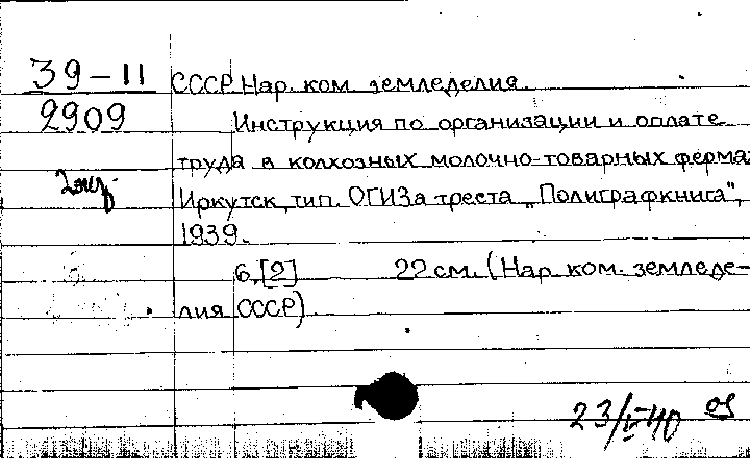 39-11
2909
2 экз.
СССР Нар. ком. земледелия.
Инструкция по организации и оплате
труда в колхозных молочно-товарных ферма
Иркутск, тип. ОГИЗа треста "Полиграфкнига",
1939.
6, [2] 22 см. (Нар. ком. земледе-
лия СССР).
23/V-40